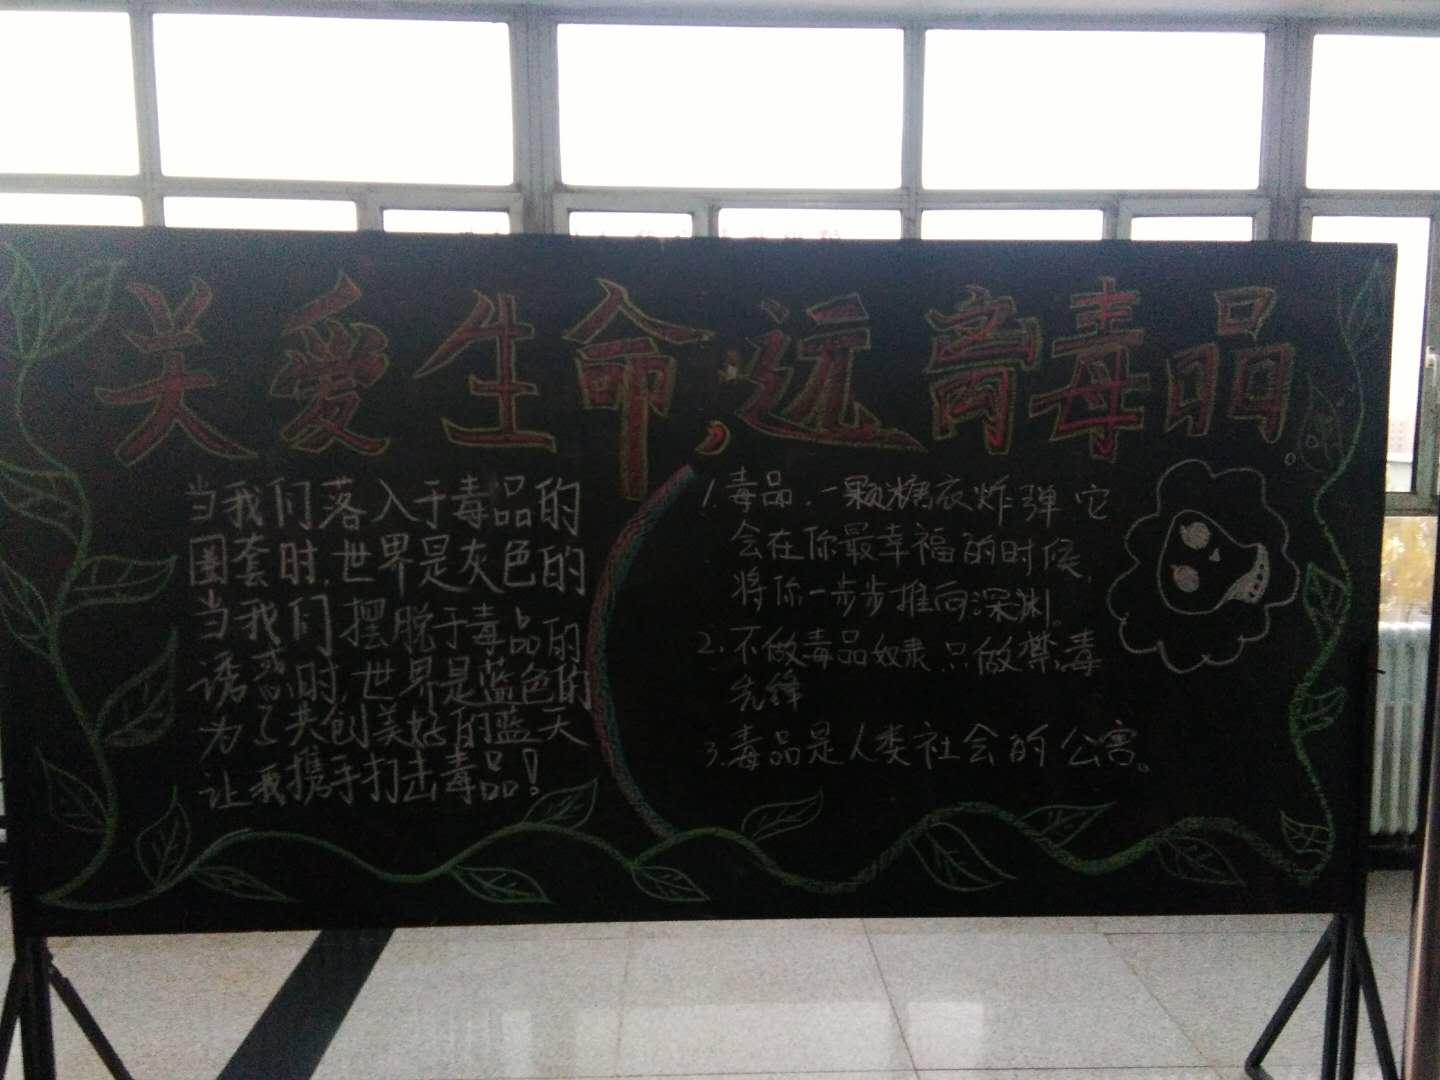 关爱生命,远离毒品。
当我们落入于毒品的
圈套时,世界是灰色的
当我们摆脱于毒品的
诱惑时,世界是蓝色的
为了共创美好的蓝天
让我携手打击毒品!
1.毒品,一颗糖衣炸弹它
会在你最幸福的时候,
将你一步步推向深渊。
2.不做毒品奴隶只做禁毒
先锋
3.毒品是人类社会的公害。